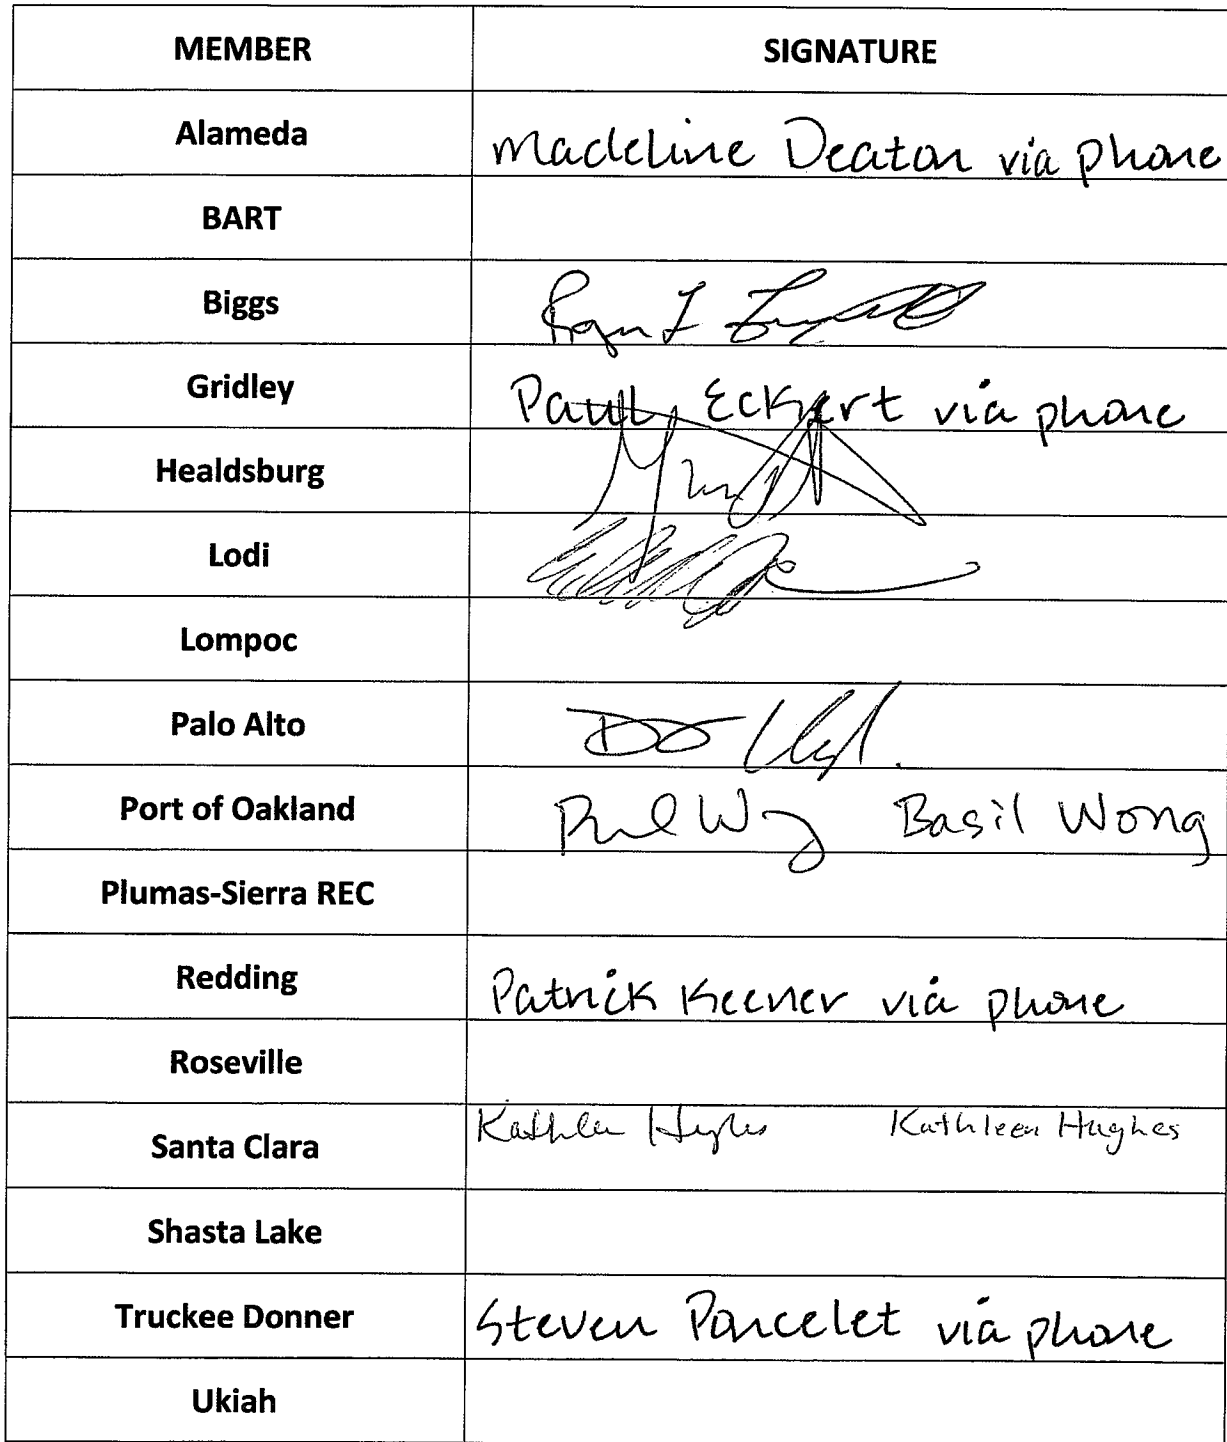 MEMBER SIGNATURE
Alameda Madeline Deaton via phone
BART
Biggs
Gridley Paul Eckert via phone
Healdsburg
Lodi
Lompoc
Palo Alto
Port of Oakland Basil Wong
Plumas-Sierra REC
Redding Patrick Keener via phone
Roseville
Santa Clara Kathleen Hughes Kathleen Hughes
Shasta Lake
Truckee Donner Steven Poncelet via phone
Ukiah